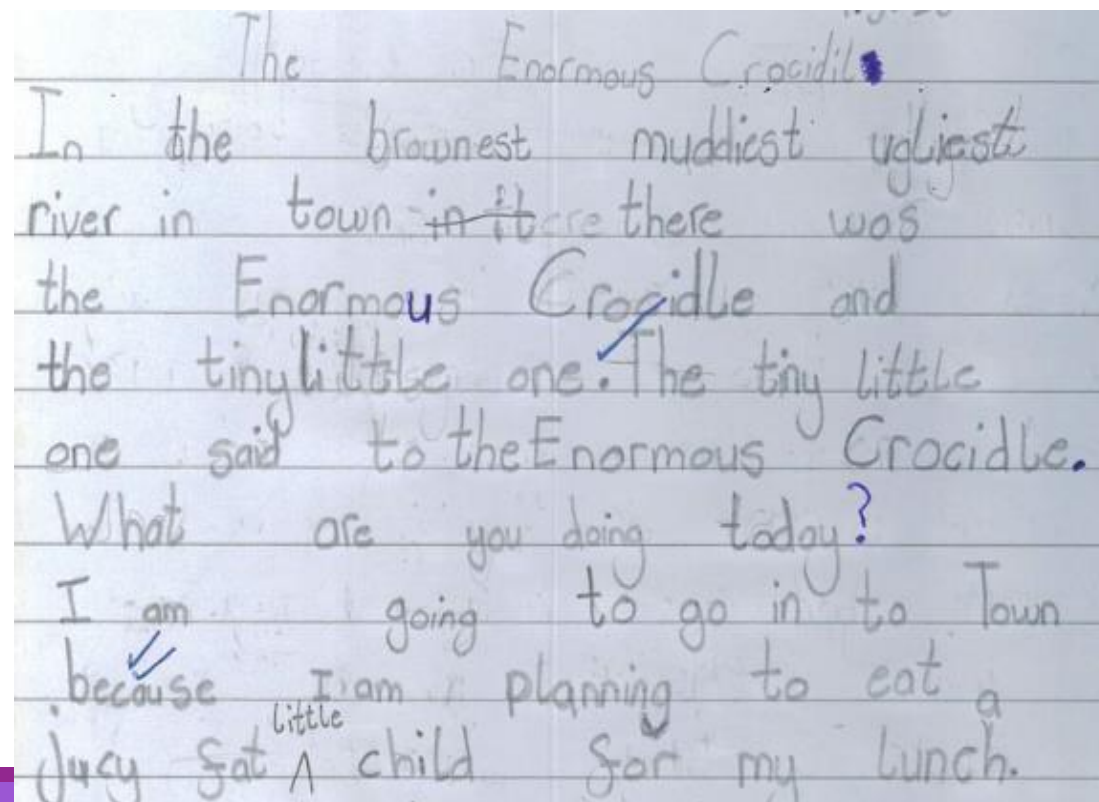 The Enormous Crocidil
In the brownest muddiest ugliest
river in town in it there was
the Enormous Crocidle and
the tiny little one. The tiny little
one said to the Enormous Crocidle.
What are you doing today?
I am going to go in to Town
because I am planning to eat a
jucy fat little child for my lunch.